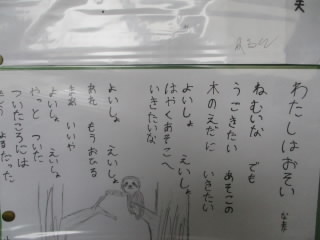 わたしはおそい
ねむいな でも
うごきたい あそこの
木のえだに いきたい
よいしょ えいしょ
はやくあそこへ
いきたいな
よいしょ えいしょ
あれ もうおひる
まあ いいや
よいしょ えいしょ
やっと ついた
ついたころには